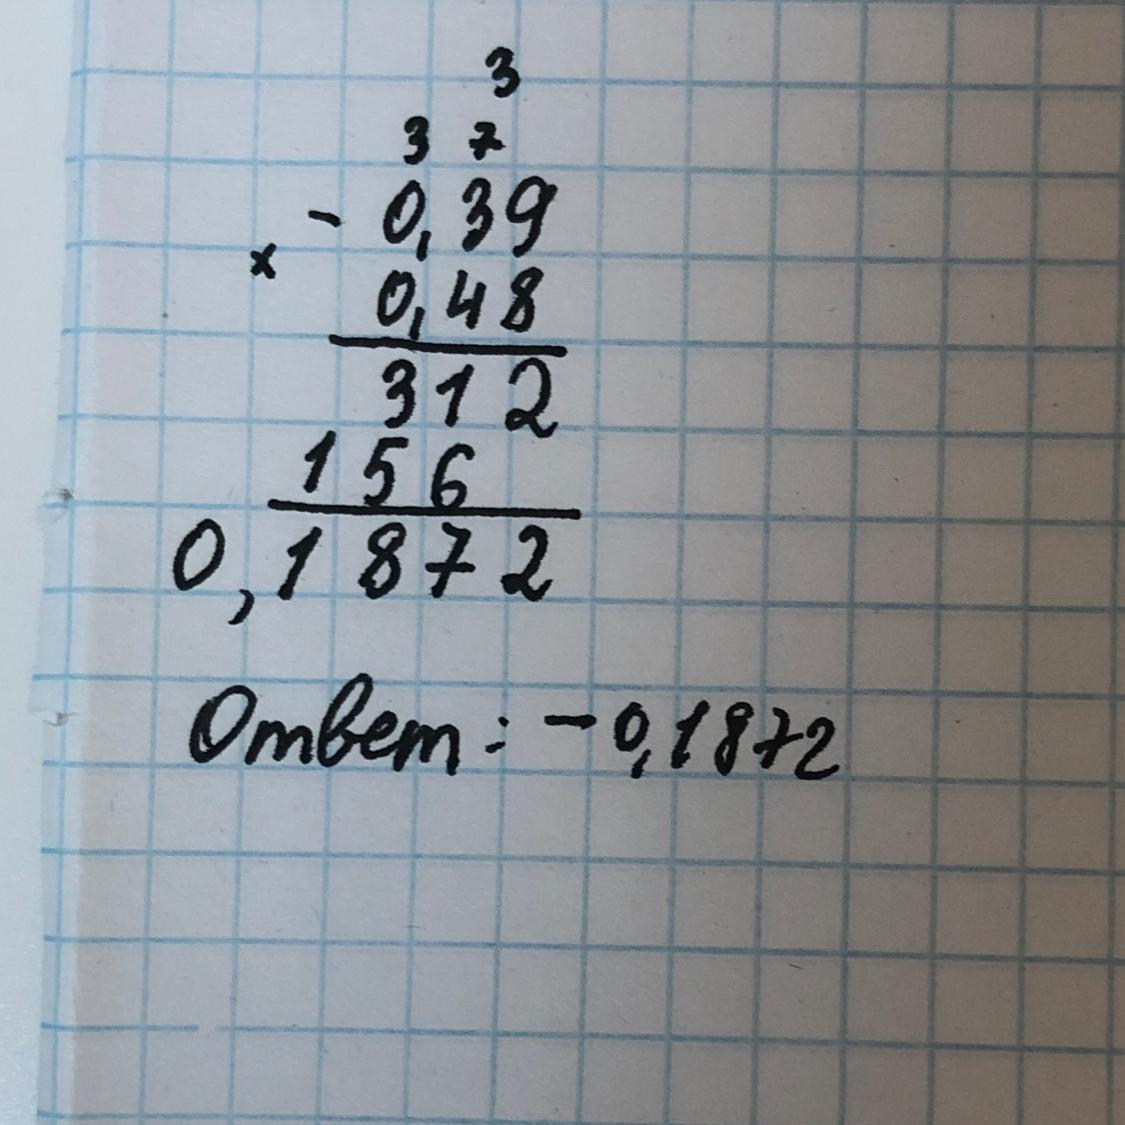 3
3 7
- 0,39
×
0,48
312
156
0,1872
Ответ: -0,1872